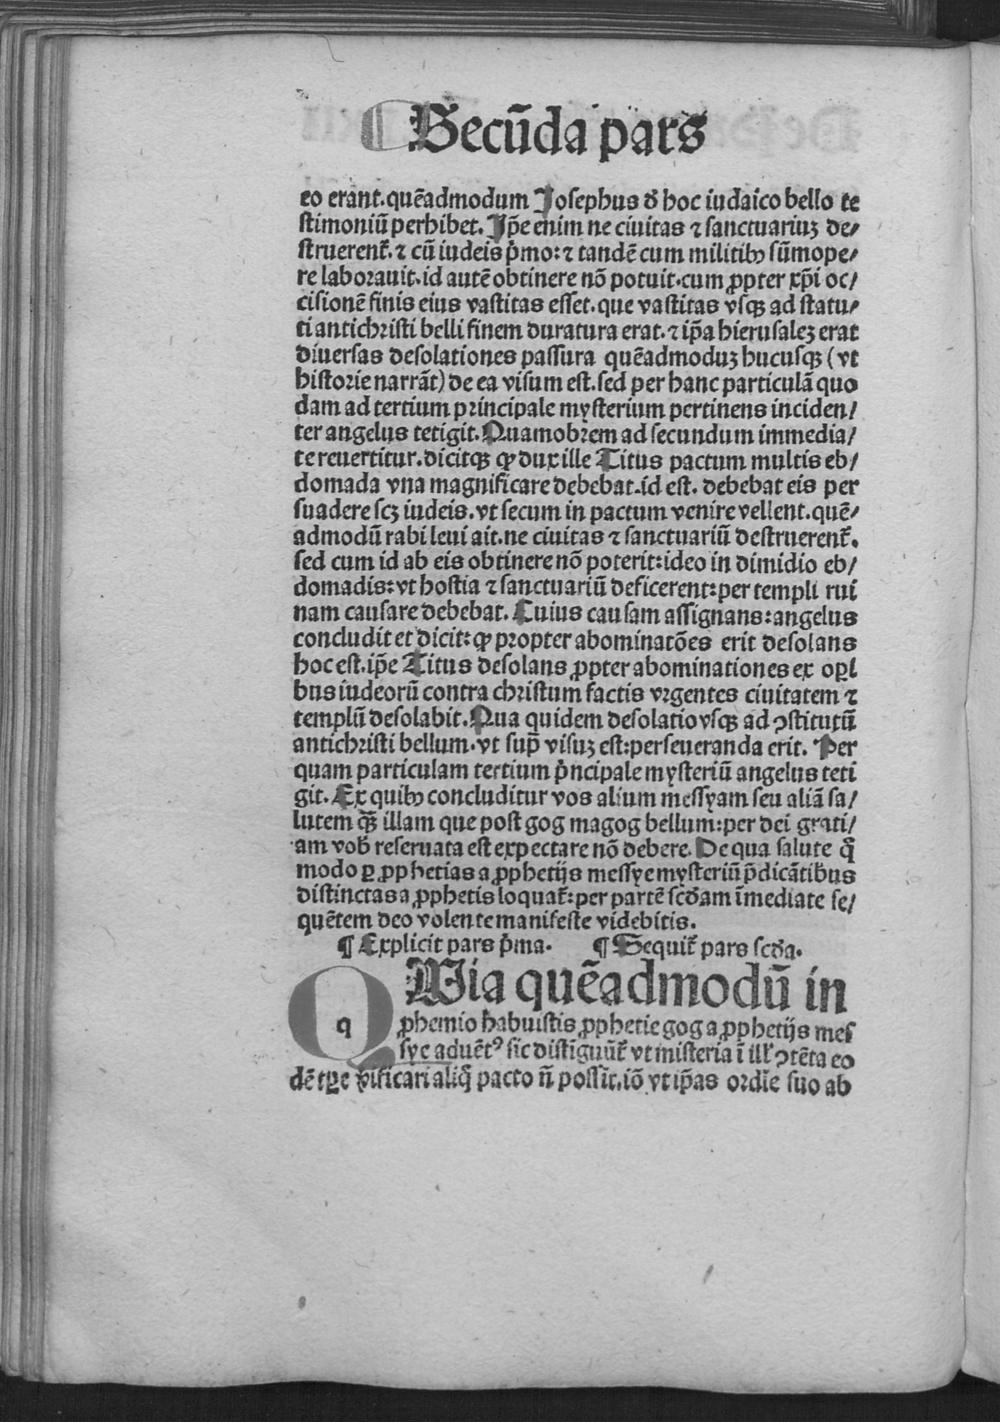 Secūda pars
eo erant.quēadmodum Josephus ꝺ̄ hoc iudaico bello te
stimoniū perhibet. Ip̄e enim ne ciuitas ⁊ sanctuariuꝫ de/
struerent̄.⁊ cū iudeis p̄mo:⁊ tandē cum militibꝰ sūmope/
re laborauit.id autē obtinere nō potuit.cum ꝓpter xp̄i oc/
cisionē finis eius vastitas esset.que vastitas vsqꝫ ad statu/
ti antichristi belli finem duratura erat.⁊ ip̄a hierusaleꝫ erat
diuersas desolationes passura quēadmoduꝫ hucusqꝫ (vt
historie narrāt) de ea visum est.sed per hanc particulā quo
dam ad tertium principale mysterium pertinens inciden/
ter angelus tetigit.Quamobrem ad secundum immedia/
te reuertitur.dicitqꝫ ꝙ dux ille Titus pactum multis eb/
domada vna magnificare debebat.id est. debebat eis per
suadere scꝫ iudeis.vt secum in pactum venire vellent.quē/
admodū rabi leui ait.ne ciuitas ⁊ sanctuariū destruerent̄.
sed cum id ab eis obtinere nō poterit:ideo in dimidio eb/
domadis:vt hostia ⁊ sanctuariū deficerent:per templi rui
nam causare debebat. Cuius causam assignans:angelus
concludit et dicit:ꝙ propter abominatōes erit desolans
hoc est.ip̄e Titus desolans ꝓpter abominationes ex oꝑi
bus iudeorū contra christum factis vrgentes ciuitatem ⁊
templū desolabit.Qua quidem desolatio vsqꝫ ad ꝯstitutū
antichristi bellum.vt sup̄ visuꝫ est:perseueranda erit. Per
quam particulam tertium p̄ncipale mysteriū angelus teti
git. Ex quibꝰ concluditur vos alium messyam seu aliā sa/
lutem qꝫ̄ illam que post gog magog bellum:per dei grati/
am vob̄ reseruata est expectare nō debere. De qua salute q̄
modo ꝑ ꝓphetias a ꝓphetijs messye mysteriū p̄dicātibus
distinctas a ꝓphetis loquat̄:per partē scd̄am īmediate se/
quētem deo volente manifeste videbitis.
¶ Explicit pars p̄ma. ¶ Sequit̄ pars scd̄a.
QUia quēadmodū in
ꝓhemio habuistis ꝓphetie gog a ꝓphetijs mes
sye aduēt᾽ sic distiguūt̄ vt misteria ī ill̄ ꝯtēta eo
dē tꝑe v̄ificari aliq̄ pacto n̄ possīt.iō vt ip̄as ordīe suo ab